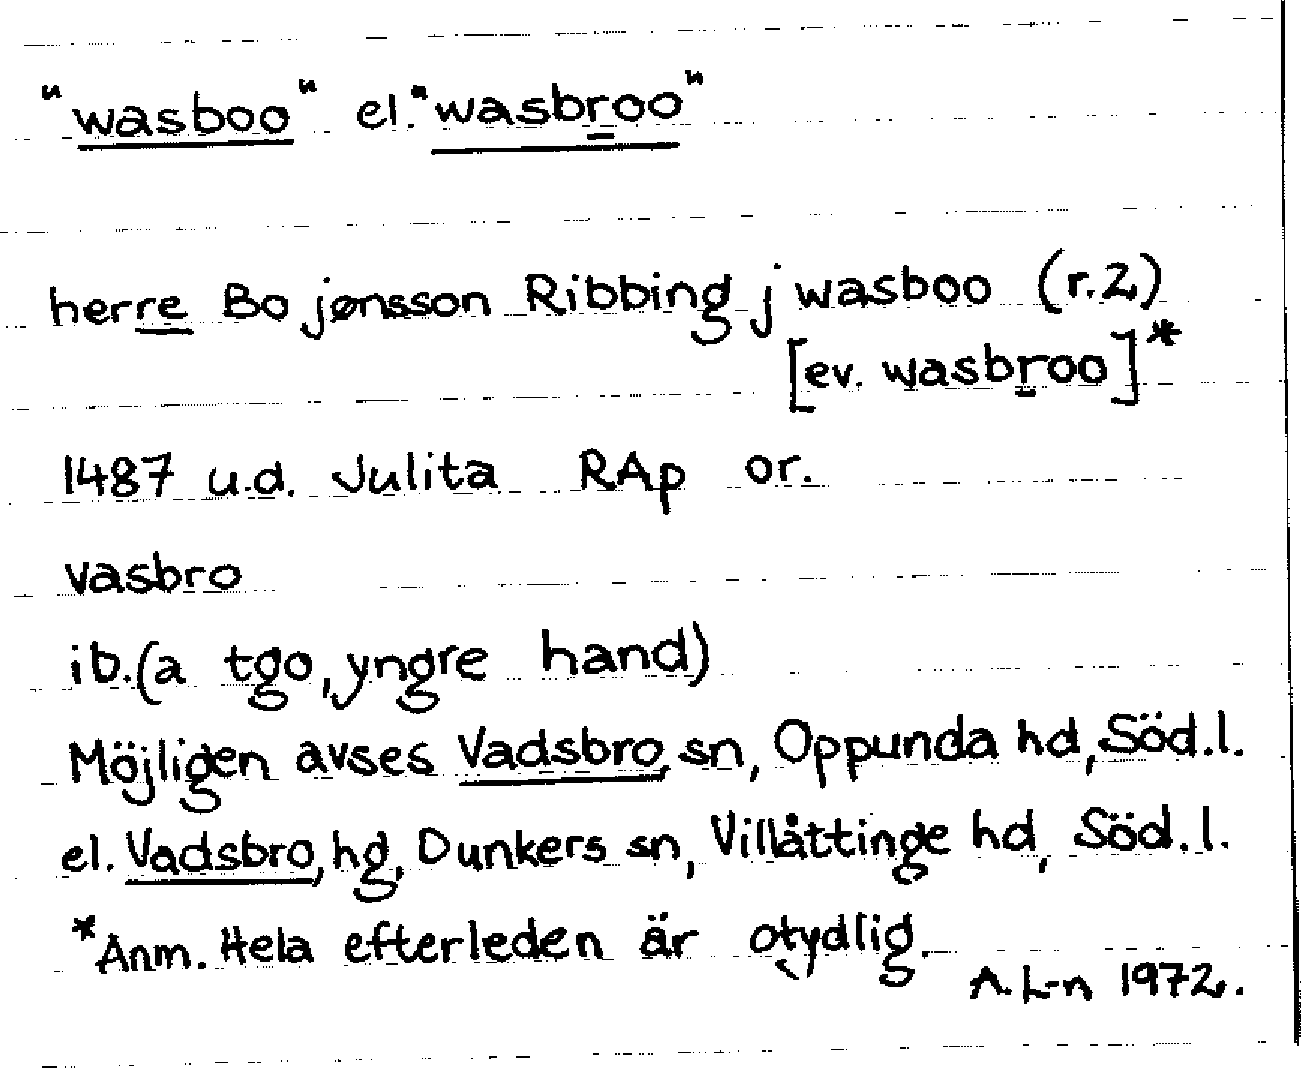 "wasboo" el. "wasbroo"
herre Bo jønsson Ribbing j wasboo (r.2)
[ev. wasbroo]*
1487 u.d. Julita RAp or.
vasbro
ib.(a tgo, yngre hand)
Möjligen avses Vadsbro, sn, Oppunda hd, Söd.l.
el. Vadsbro, hg, Dunkers sn, Villåttinge hd, Söd.l.
*Anm. Hela efterleden är otydlig.
A. L-n 1972.